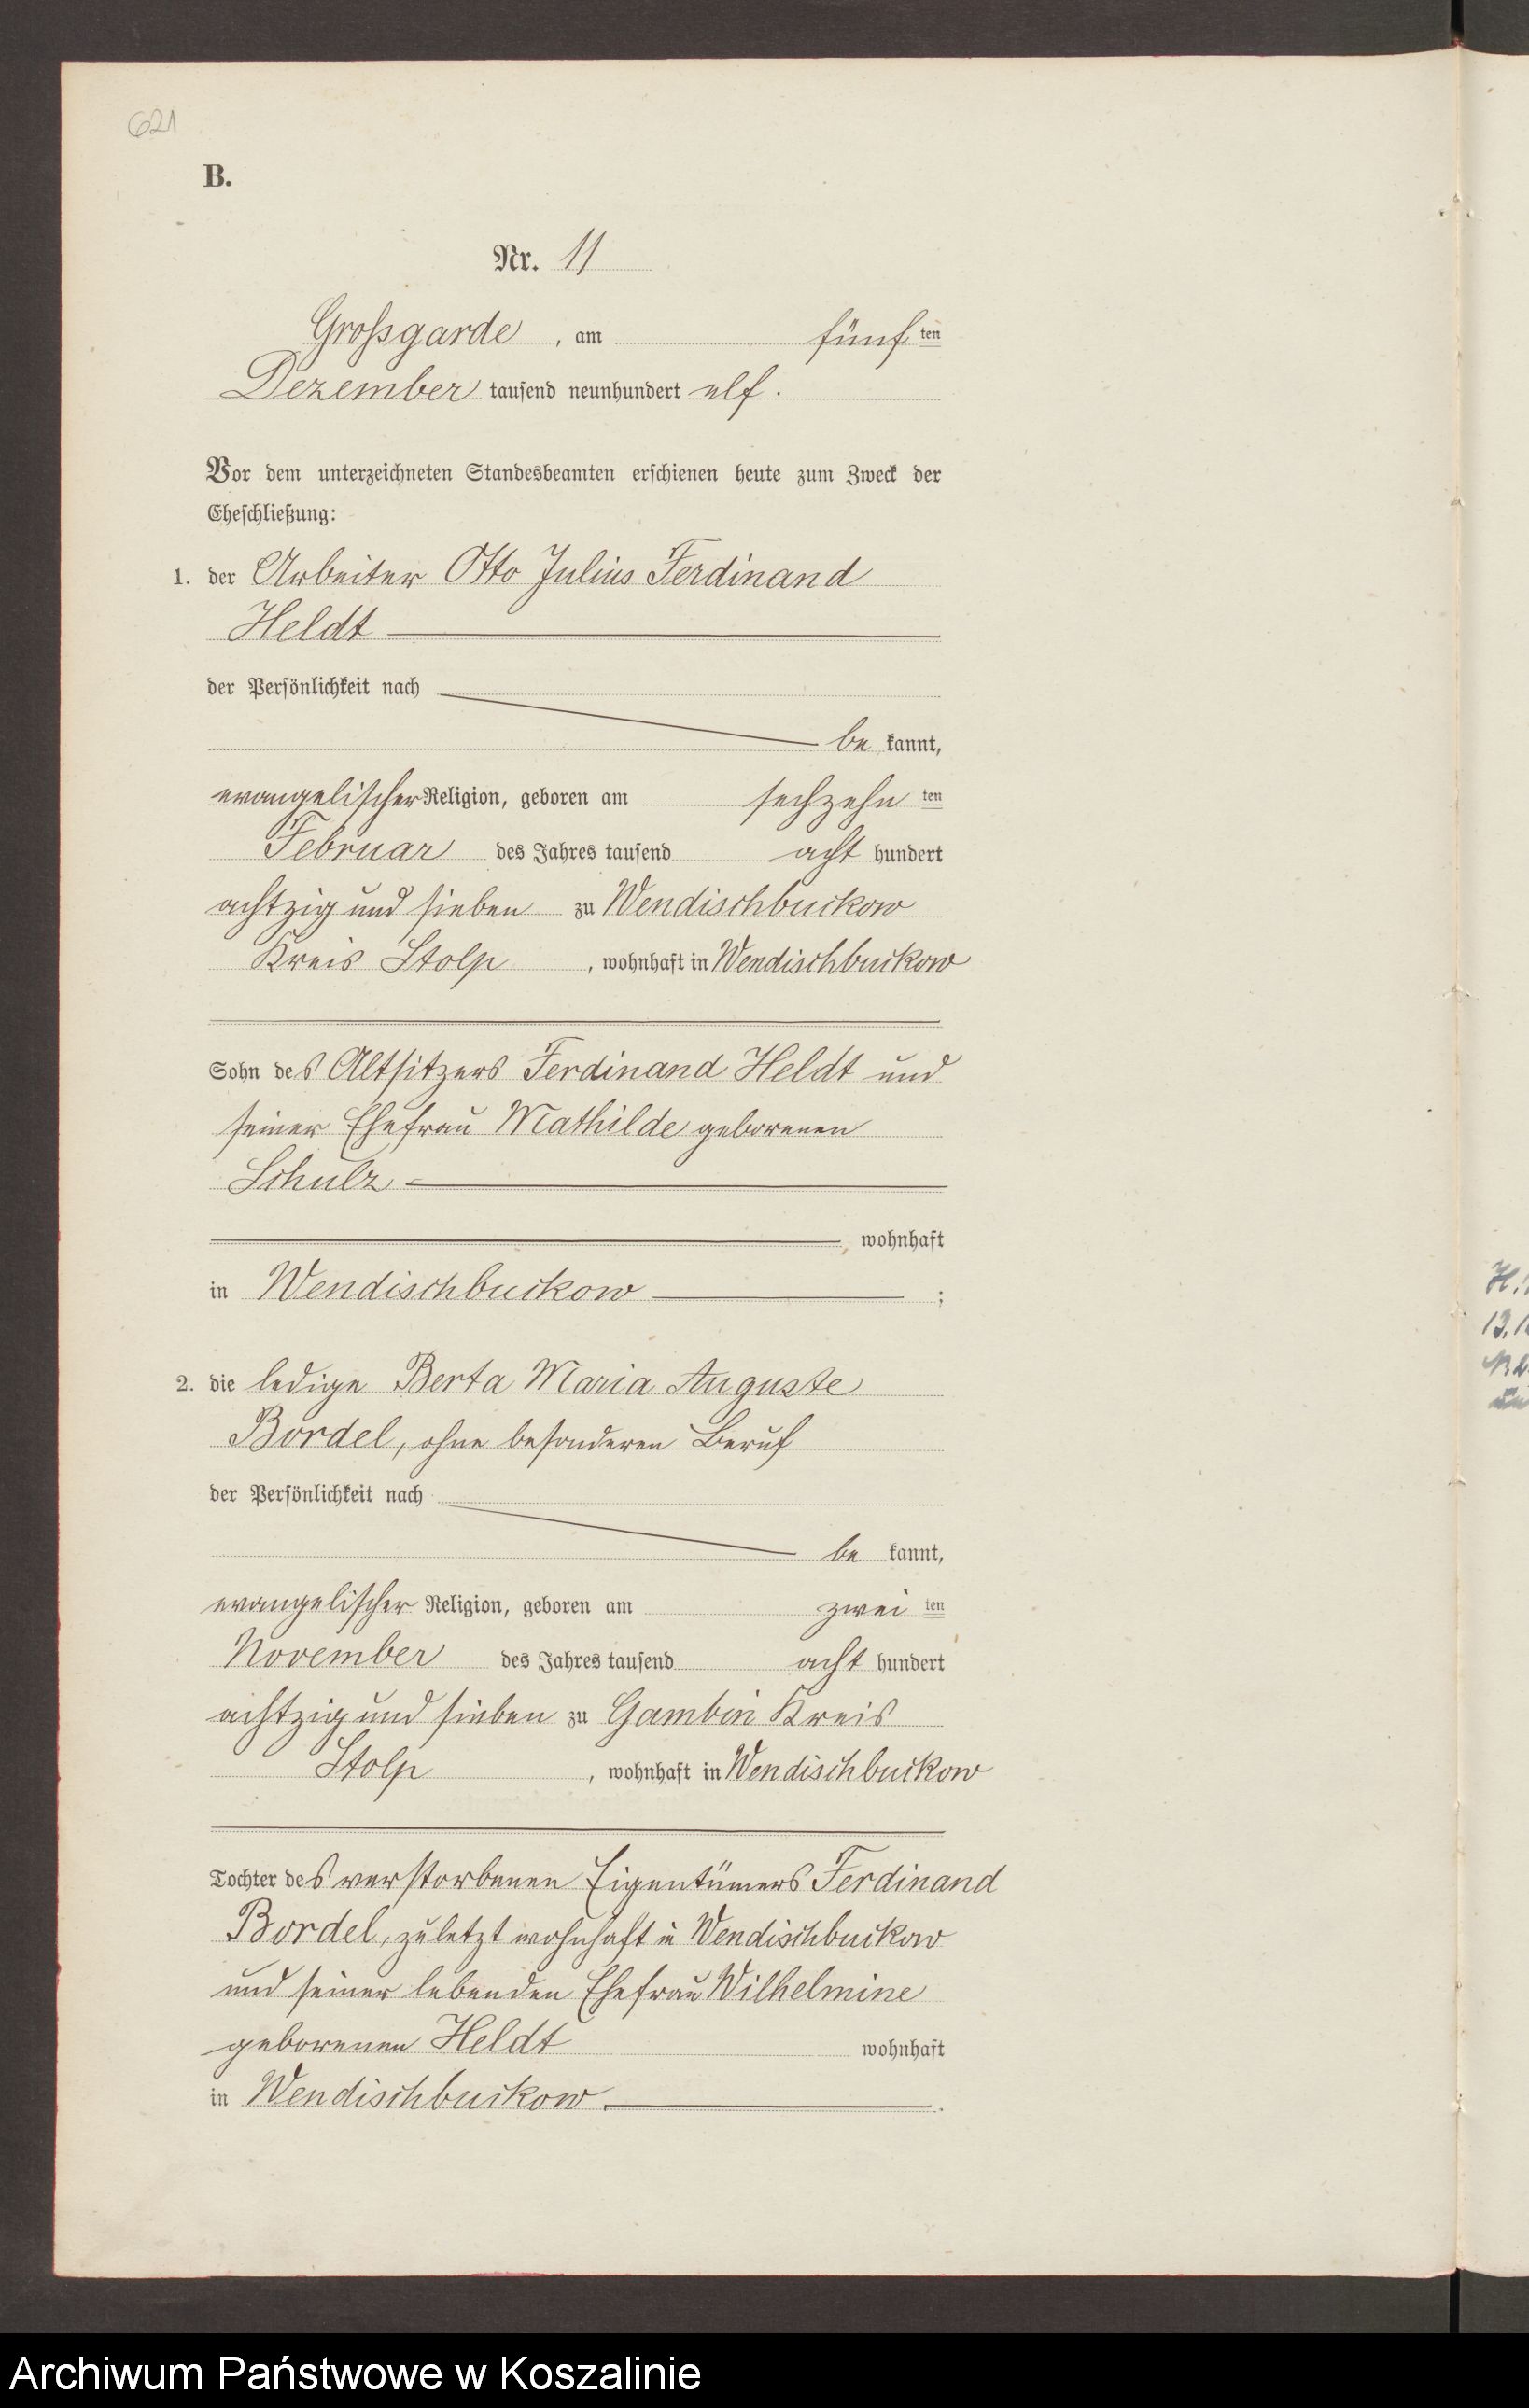 621
B.
Nr. 11
Grossgarde, am fünf ten
Dezember tausend neunhundert elf.
Vor dem unterzeichneten Standesbeamten erschienen heute zum Zweck der
Eheschließung:
1. der Arbeiter Otto Julius Ferdinand
Heldt
der Persönlichkeit nach
be kannt,
evangelischer Religion, geboren am sechzehn ten
Februar des Jahres tausend acht hundert
achtzig und sieben zu Wendischbuckow
Kreis Stolp, wohnhaft in Wendischbuckow
Sohn des Altsitzers Ferdinand Heldt und
seiner Ehefrau Mathilde geborenen
Schulz
wohnhaft
in Wendischbuckow ;
2. die ledige Berta Maria Auguste
Bordel, ohne besonderen Beruf
der Persönlichkeit nach
be kannt,
evangelischer Religion, geboren am zwei ten
November des Jahres tausend acht hundert
achtzig und sieben zu Gambin Kreis
Stolp, wohnhaft in Wendischbuckow
Tochter des verstorbenen Eigentümers Ferdinand
Bordel, zuletzt wohnhaft in Wendischbuckow
und seiner lebenden Ehefrau Wilhelmine
geborenen Heldt wohnhaft
in Wendischbuckow.
Archiwum Państwowe w Koszalinie